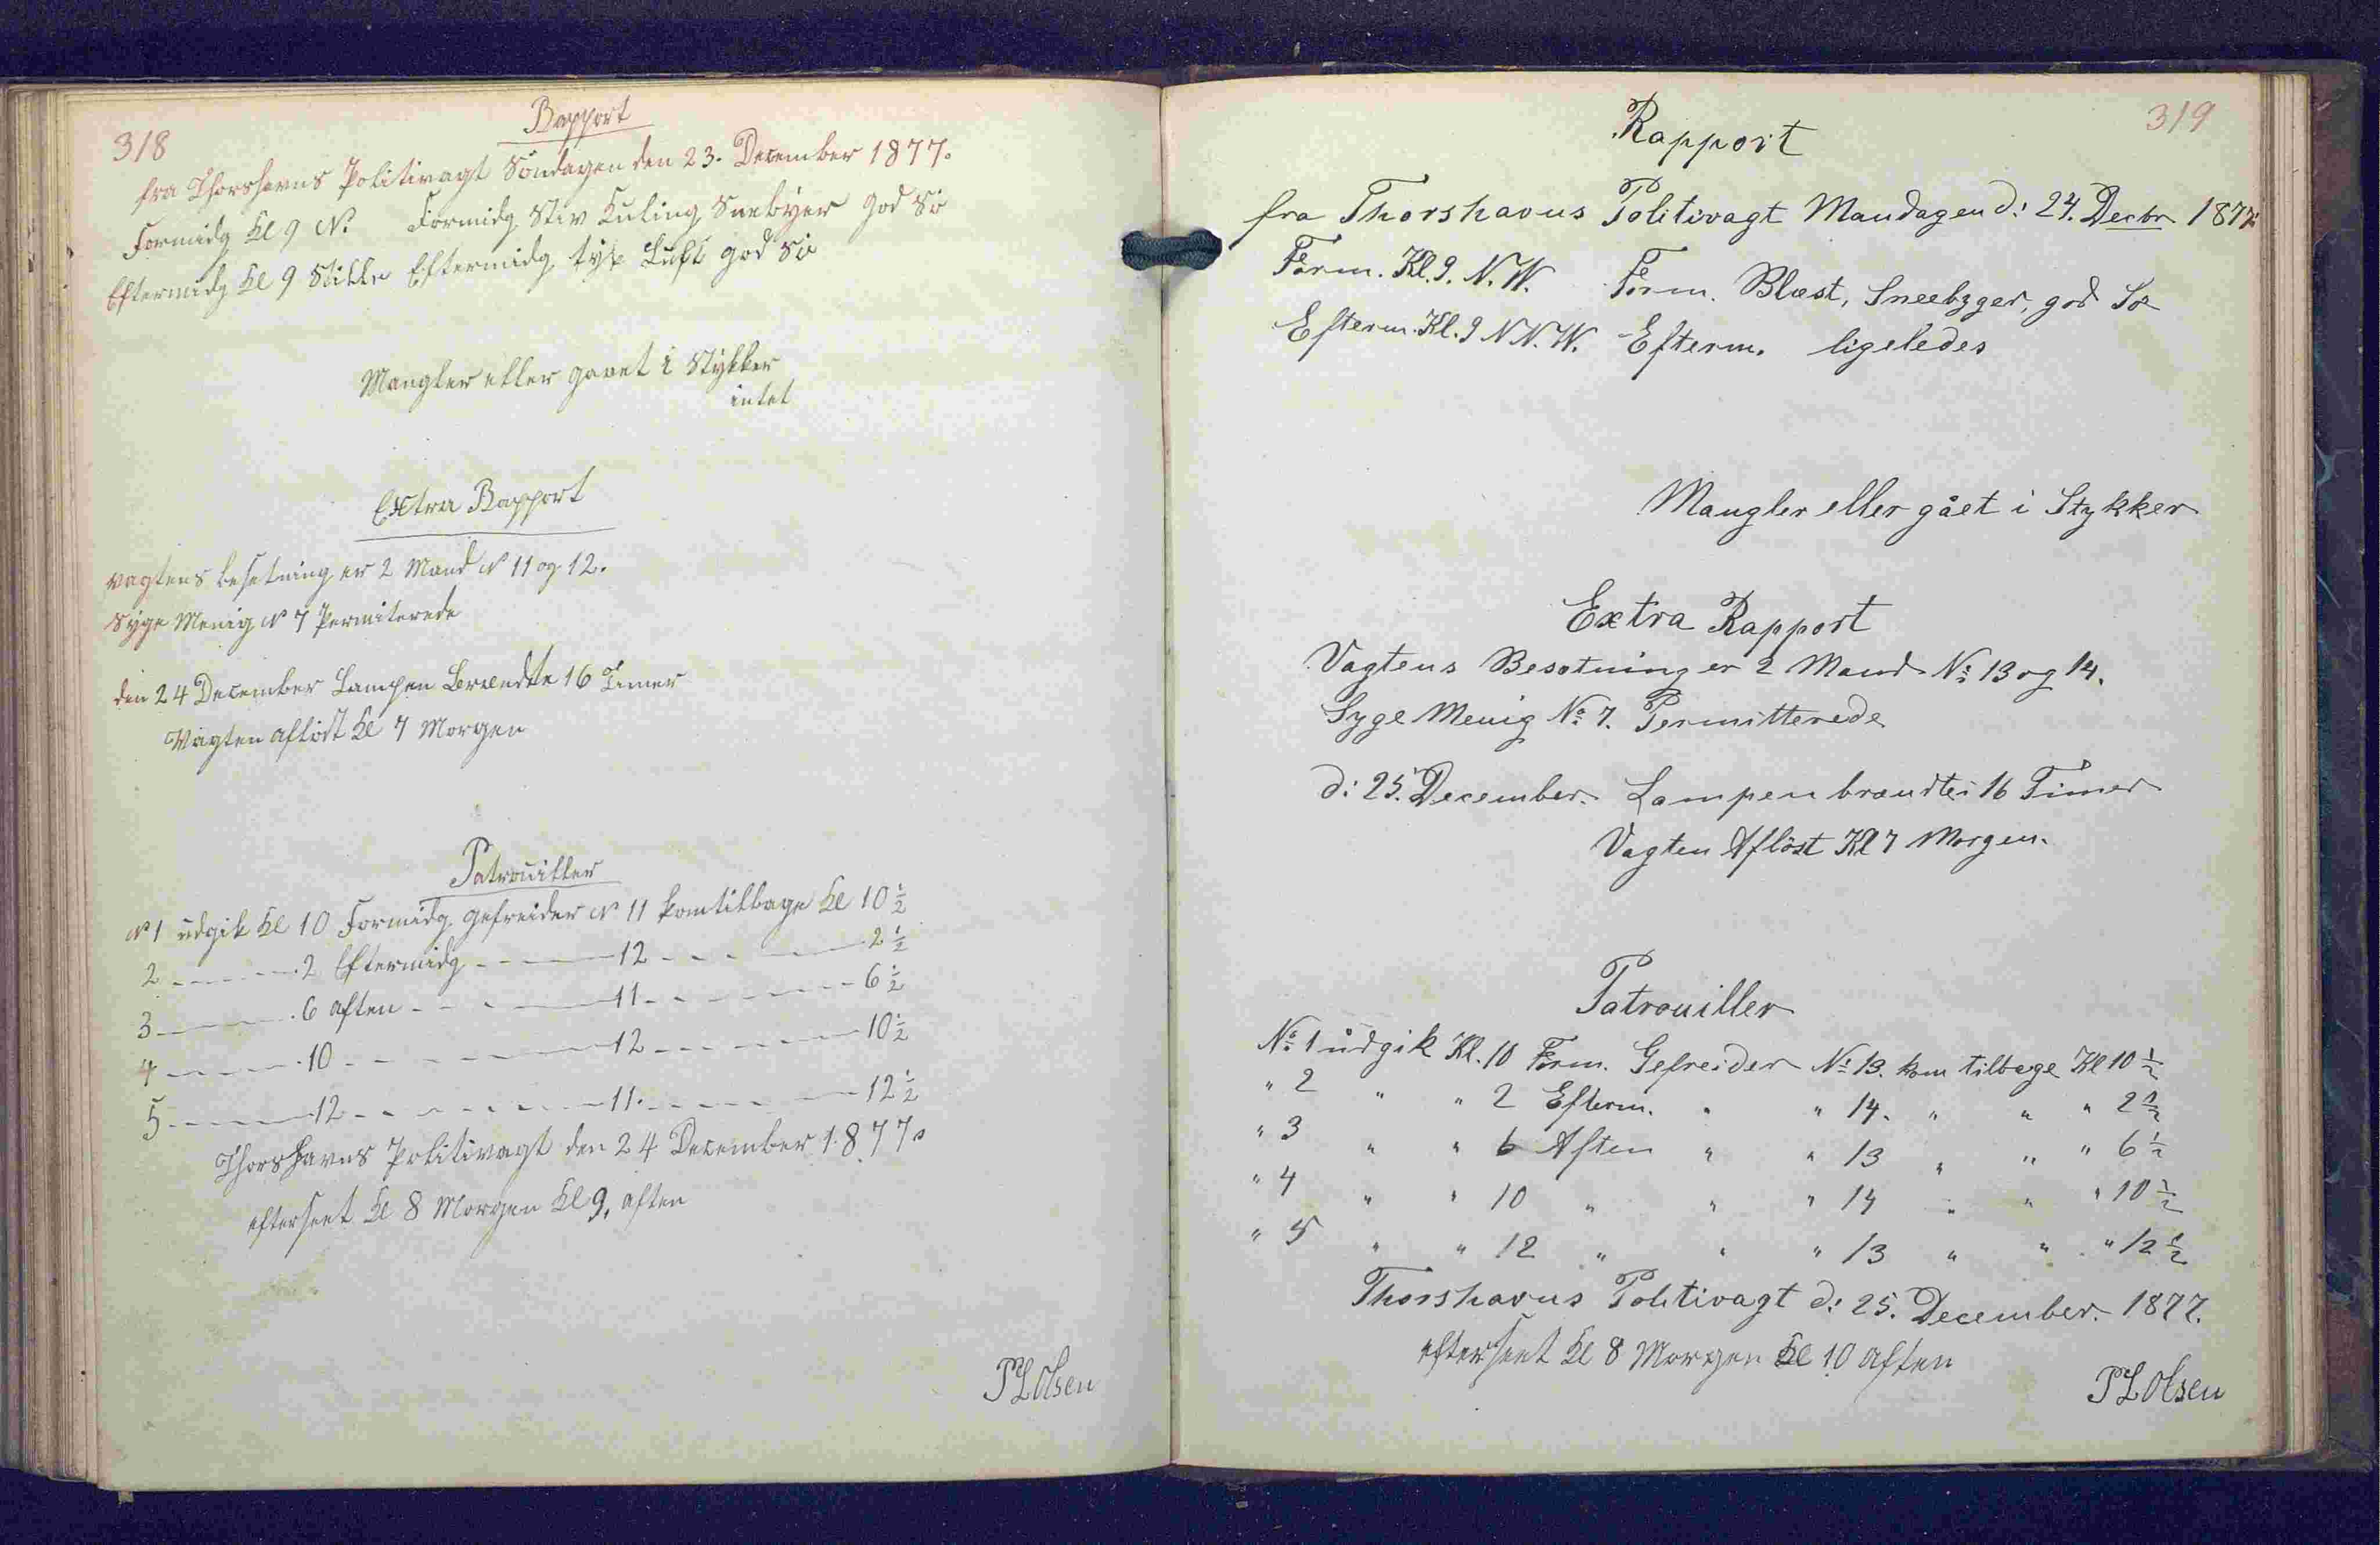 318
Rapport
fra Thorshavns Politivagt Søndagen den 23. December 1877.
Formidg Kl 9 N. Formidg Stiv Kuling Sneebyer god Sö
Eftermidg Kl 9 Stille Eftermidg tyk Luft god Sö
Mangler eller gaaet i Stykker
intet
Extra Rapport
vagtens besetning er 2 Mand N 11 og 12.
Syge Menig N 7 Permiterede
den 24 December Lampen Brændte 16 Timer
Vagten aflöst Kl 7 Morgen
Patrouiller
N 1 udgik Kl 10 Formidg gefreider N 11 kom tilbage Kl 10 ½
2 - - - - - 2 Eftermidg - - - 12 - - - - 2 ½
3 - - - - - 6 aften - - - - 11 - - - - 6 ½
4 - - - - - 10 - - - - - 12 - - - - 10 ½
5 - - - - - 12 - - - - - 11. - - - - 12 ½
Thorshavns Politivagt den 24 December 1877.
efterseet Kl 8 Morgen Kl 9. aften
PL Olsen
319
Rapport
fra Thorshavns Politivagt Mandagen d: 24. Decbr 1877.
Form. Kl. 9. N. W. Form. Blæst, Sneebyger, god Sø
Efterm. Kl. 9 N N. W. Efterm. ligeledes
Mangler eller gået i Stykker
Extra Rapport
Vagtens Besætning er 2 Mand No 13 og 14.
Syge Menig No 7. Permitterede
d: 25. December. Lampen brændte i 16 Timer
Vagten Aflöst Kl 7 Morgen.
Patrouiller
No 1 udgik Kl. 10 Form. Gefreider No 13. kom tilbage Kl 10 ½
" 2 " " 2 Efterm. " " 14. " " " 2 ½
" 3 " " 6 Aften " " 13 " " " 6 ½
" 4 " " 10 " " " 14 " " " 10 ½
" 5 " " 12 " " " 13 " " " 12 ½
Thorshavns Politivagt d: 25. December. 1877.
efterseet Kl 8 Morgen Kl 10 aften
PL Olsen